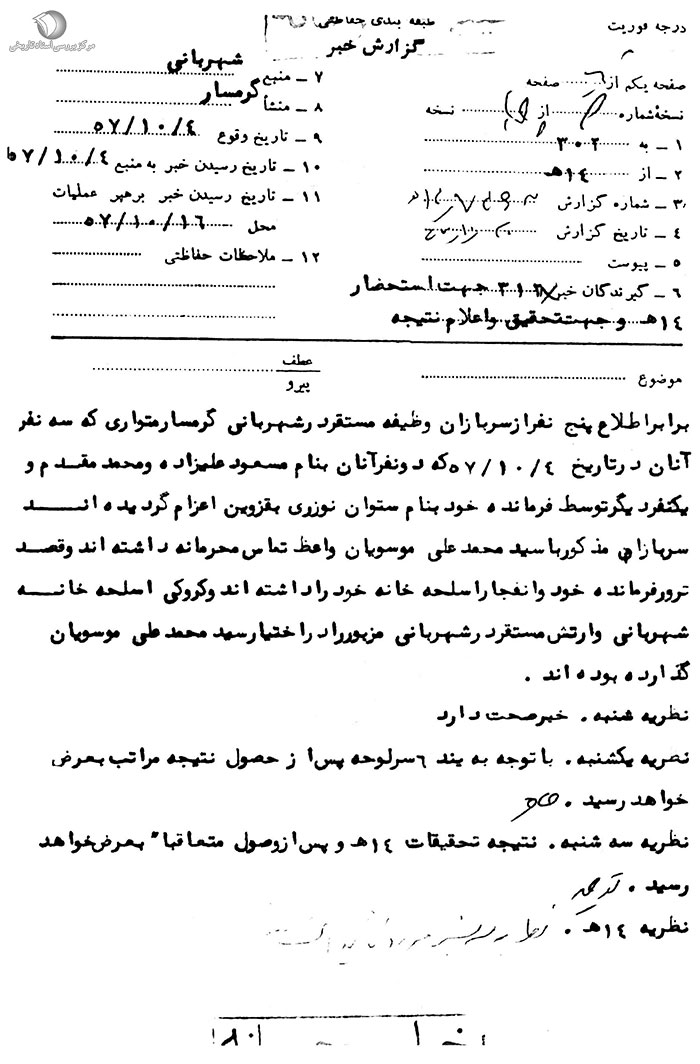 مرکز بررسی اسناد تاریخی
درجه فوریت
طبقه بندی حفاظتی
گزارش خبر
صفحه یکم از ۱ صفحه
نسخه شماره از نسخه
۱ ــ به ۳۰۲
۲ ــ از ۱۴هـ
۳ ــ شماره گزارش
۴ ــ تاریخ گزارش
۵ ــ پیوست
۶ ــ گیرندگان خبر ۳۱۲ جهت استحضار
۱۴هـ و جهت تحقیق و اعلام نتیجه
۷ ــ منبع شهربانی
۸ ــ منشأ گرمسار
۹ ــ تاریخ وقوع ۵۷/۱۰/۴
۱۰ ــ تاریخ رسیدن خبر به منبع ۵۷/۱۰/۴
۱۱ ــ تاریخ رسیدن خبر برهبر عملیات
محل ۵۷/۱۰/۱۶
۱۲ ــ ملاحظات حفاظتی
موضوع
عطف
پیرو
برابر اطلاع پنج نفر از سربازان وظیفه مستقر در شهربانی گرمسار متواری که سه نفر
آنان در تاریخ ۵۷/۱۰/۴ که دو نفر آنان بنام مسعود علیزاده و محمد مقدم و
یکنفر دیگر توسط فرمانده خود بنام ستوان نوزری بقزوین اعزام گردیده انــد
سربازان مذکور با سید محمد علی موسویان واعظ تماس محرمانه داشته اند و قصد
ترور فرمانده خود و انفجار اسلحه خانه خود را داشته اند و کروکی اسلحه خانــه
شهربانی و ارتش مستقر در شهربانی مزبور را در اختیار سید محمد علی موسویان
گذارده بوده اند .
نظریه شنبه . خبر صحت دارد
نصریه یکشنبه . با توجه به بند ۶ سرلوحه پس از حصول نتیجه مراتب بعرض
خواهد رسید .
نظریه سه شنبه . نتیجه تحقیقات ۱۴هـ و پس از وصول متعاقباً بعرض خواهد
رسید .
نظریه ۱۴هـ .